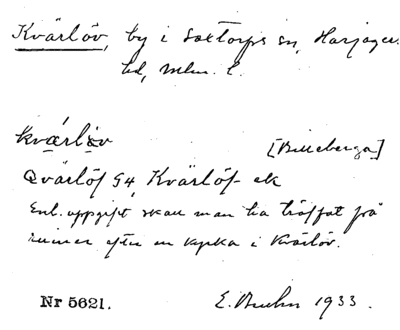 Kvärlöv, by i Saxtorps sn, Harjagers
hd, Mlm. l.
kvärlöv [Billeberga]
Qvärlöf G4, Kvärlöf ek
Enl. uppgift skall man ha träffat på
ruiner efter en kyrka i Kvärlöv.
Nr 5621. E. Bruhn 1933.